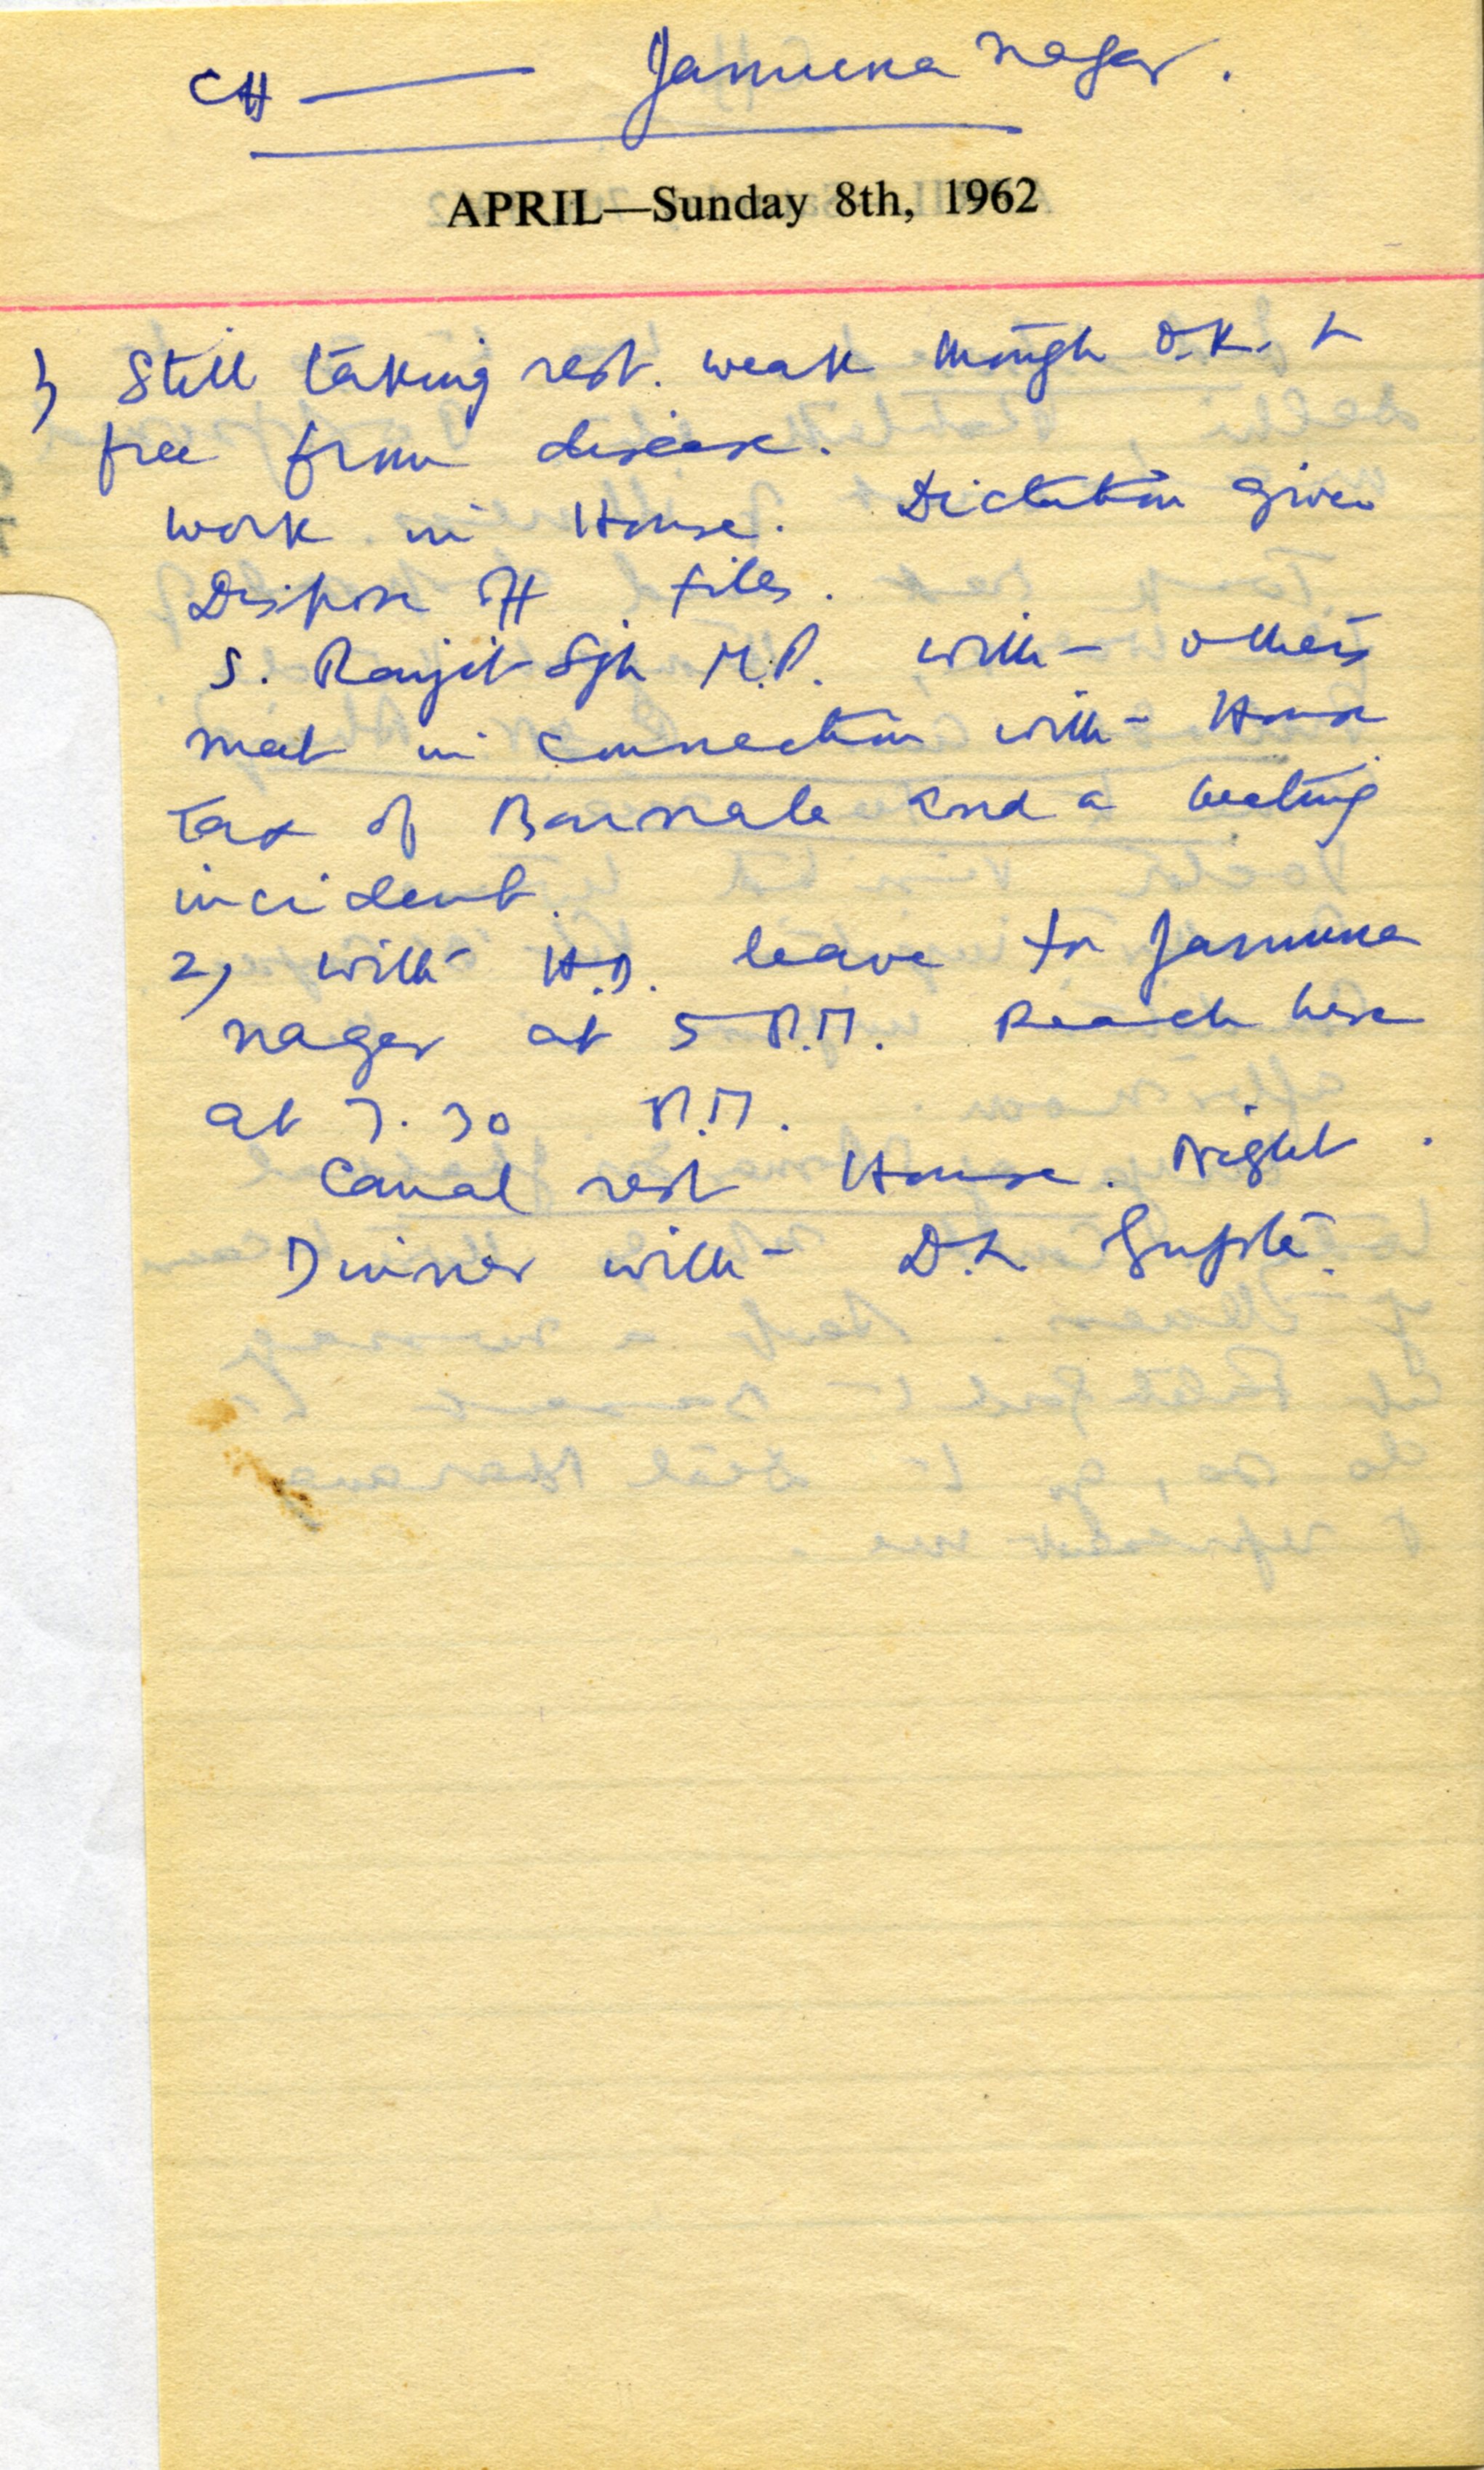 CH — Jamuna nagar.
APRIL—Sunday 8th, 1962
1) Still taking rest. weak though O.K. &
free from disease.
work in House. Dictation given
Dispose off files.
S. Ranjit Sgh M.P. with others
met in connection with House
Tax of Barnala and a beating
incident.
2) with H.D. leave for Jamuna
nagar at 5 P.M. Reach here
at 7.30 P.M.
Canal rest House. Night.
Dinner with D.L. Gupta.